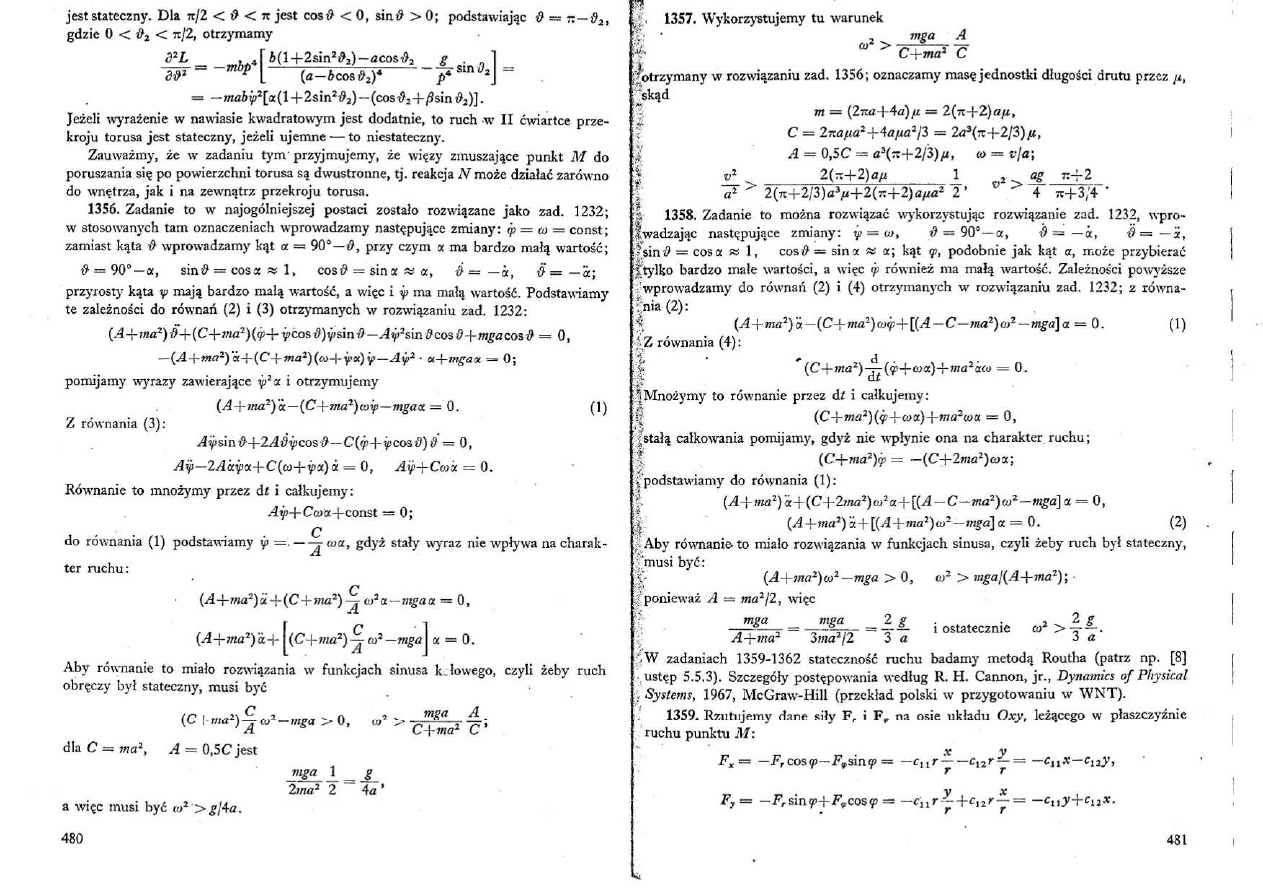 jest stateczny. Dla π/2 < ϑ < π jest cosϑ < 0, sinϑ > 0; podstawiając ϑ = π−ϑ₂,
gdzie 0 < ϑ₂ < π/2, otrzymamy
∂²L/∂ϑ² = −mbp⁴[ (b(1+2sin²ϑ₂)−acosϑ₂)/(a−bcosϑ₂)⁴ − g/p⁴ sinϑ₂ ] =
= −mabψ̇²[α(1+2sin²ϑ₂)−(cosϑ₂+βsinϑ₂)].
Jeżeli wyrażenie w nawiasie kwadratowym jest dodatnie, to ruch w II ćwiartce prze-
kroju torusa jest stateczny, jeżeli ujemne — to niestateczny.
Zauważmy, że w zadaniu tym przyjmujemy, że więzy zmuszające punkt M do
poruszania się po powierzchni torusa są dwustronne, tj. reakcja N może działać zarówno
do wnętrza, jak i na zewnątrz przekroju torusa.
1356. Zadanie to w najogólniejszej postaci zostało rozwiązane jako zad. 1232;
w stosowanych tam oznaczeniach wprowadzamy następujące zmiany: φ̇ = ω = const;
zamiast kąta ϑ wprowadzamy kąt α = 90°−ϑ, przy czym α ma bardzo małą wartość;
ϑ = 90°−α, sinϑ = cosα ≈ 1, cosϑ = sinα ≈ α, ϑ̇ = −α̇, ϑ̈ = −α̈;
przyrosty kąta ψ mają bardzo małą wartość, a więc i ψ̇ ma małą wartość. Podstawiamy
te zależności do równań (2) i (3) otrzymanych w rozwiązaniu zad. 1232:
(A+ma²)ϑ̈+(C+ma²)(φ̇+ψ̇cosϑ)ψ̇sinϑ−Aψ̇²sinϑcosϑ+mgacosϑ = 0,
−(A+ma²)α̈+(C+ma²)(ω+ψ̇α)ψ̇−Aψ̇² · α+mgaα = 0;
pomijamy wyrazy zawierające ψ̇²α i otrzymujemy
(A+ma²)α̈−(C+ma²)ωψ̇−mgaα = 0. (1)
Z równania (3):
Aψ̈sinϑ+2Aϑ̇ψ̇cosϑ−C(φ̇+ψ̇cosϑ)ϑ̇ = 0,
Aψ̈−2Aα̇ψ̇α+C(ω+ψ̇α)α̇ = 0, Aψ̈+Cωα̇ = 0.
Równanie to mnożymy przez dt i całkujemy:
Aψ̇+Cωα+const = 0;
do równania (1) podstawiamy ψ̇ = −C/A ωα, gdyż stały wyraz nie wpływa na charak-
ter ruchu:
(A+ma²)α̈+(C+ma²) C/A ω²α−mgaα = 0,
(A+ma²)α̈+[(C+ma²) C/A ω²−mga] α = 0.
Aby równanie to miało rozwiązania w funkcjach sinusa kołowego, czyli żeby ruch
obręczy był stateczny, musi być
(C+ma²) C/A ω²−mga > 0, ω² > mga/(C+ma²) A/C;
dla C = ma², A = 0,5C jest
mga/2ma² 1/2 = g/4a,
a więc musi być ω² > g/4a.
480
1357. Wykorzystujemy tu warunek
ω² > mga/(C+ma²) A/C
otrzymany w rozwiązaniu zad. 1356; oznaczamy masę jednostki długości drutu przez μ,
skąd
m = (2πa+4a)μ = 2(π+2)aμ,
C = 2πaμa²+4aμa²/3 = 2a³(π+2/3)μ,
A = 0,5C = a³(π+2/3)μ, ω = v/a;
v²/a² > 2(π+2)aμ/(2(π+2/3)a³μ+2(π+2)aμa²) 1/2, v² > ag/4 (π+2)/(π+3/4).
1358. Zadanie to można rozwiązać wykorzystując rozwiązanie zad. 1232, wpro-
wadzając następujące zmiany: ψ̇ = ω, ϑ = 90°−α, ϑ̇ = −α̇, ϑ̈ = −α̈,
sinϑ = cosα ≈ 1, cosϑ = sinα ≈ α; kąt φ, podobnie jak kąt α, może przybierać
tylko bardzo małe wartości, a więc φ̇ również ma małą wartość. Zależności powyższe
wprowadzamy do równań (2) i (4) otrzymanych w rozwiązaniu zad. 1232; z równa-
nia (2):
(A+ma²)α̈−(C+ma²)ωφ̇+[(A−C−ma²)ω²−mga]α = 0. (1)
Z równania (4):
(C+ma²) d/dt (φ̇+ωα)+ma²α̇ω = 0.
Mnożymy to równanie przez dt i całkujemy:
(C+ma²)(φ̇+ωα)+ma²ωα = 0,
stałą całkowania pomijamy, gdyż nie wpłynie ona na charakter ruchu;
(C+ma²)φ̇ = −(C+2ma²)ωα;
podstawiamy do równania (1):
(A+ma²)α̈+(C+2ma²)ω²α+[(A−C−ma²)ω²−mga]α = 0,
(A+ma²)α̈+[(A+ma²)ω²−mga]α = 0. (2)
Aby równanie to miało rozwiązania w funkcjach sinusa, czyli żeby ruch był stateczny,
musi być:
(A+ma²)ω²−mga > 0, ω² > mga/(A+ma²);
ponieważ A = ma²/2, więc
mga/(A+ma²) = mga/(3ma²/2) = 2/3 g/a i ostatecznie ω² > 2/3 g/a.
W zadaniach 1359-1362 stateczność ruchu badamy metodą Routha (patrz np. [8]
ustęp 5.5.3). Szczegóły postępowania według R. H. Cannon, jr., Dynamics of Physical
Systems, 1967, McGraw-Hill (przekład polski w przygotowaniu w WNT).
1359. Rzutujemy dane siły Fᵣ i Fᵩ na osie układu Oxy, leżącego w płaszczyźnie
ruchu punktu M:
Fₓ = −Fᵣcosφ−Fᵩsinφ = −c₁₁r x/r −c₁₂r y/r = −c₁₁x−c₁₂y,
Fᵧ = −Fᵣsinφ+Fᵩcosφ = −c₁₁r y/r +c₁₂r x/r = −c₁₁y+c₁₂x.
481